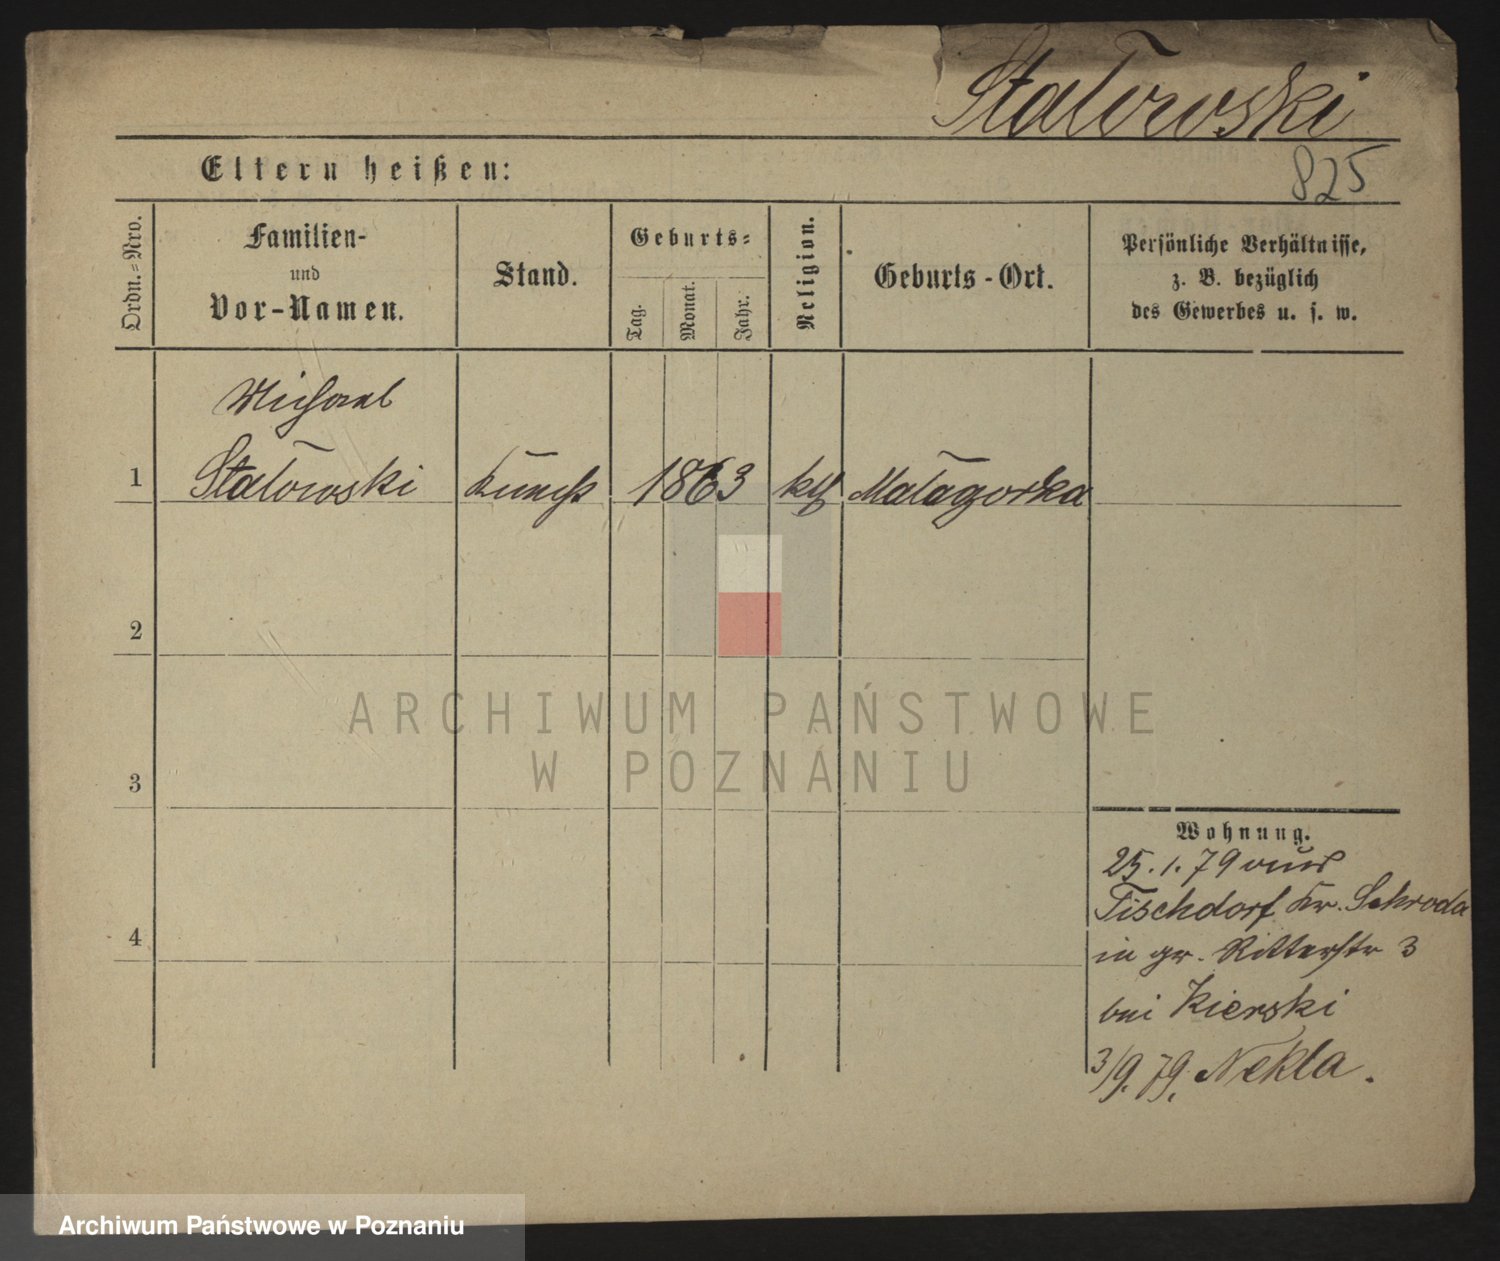 Statowski
825
Eltern heißen:
Ordn.=Nro.
Familien-
und
Vor-Namen.
Stand.
Geburts=
Tag.
Monat.
Jahr.
Religion.
Geburts-Ort.
Persönliche Verhältnisse,
z. B. bezüglich
des Gewerbes u. s. w.
Michael
1 Statowski 1863 kth Malagorka
2
ARCHIWUM PAŃSTWOWE
W POZNANIU
3
Wohnung.
25.1.79 aus
Tischdorf Kr. Schroda
in gr. Ritterstr 3
bei Kierski
3/9.79. Nekla.
4
Archiwum Państwowe w Poznaniu